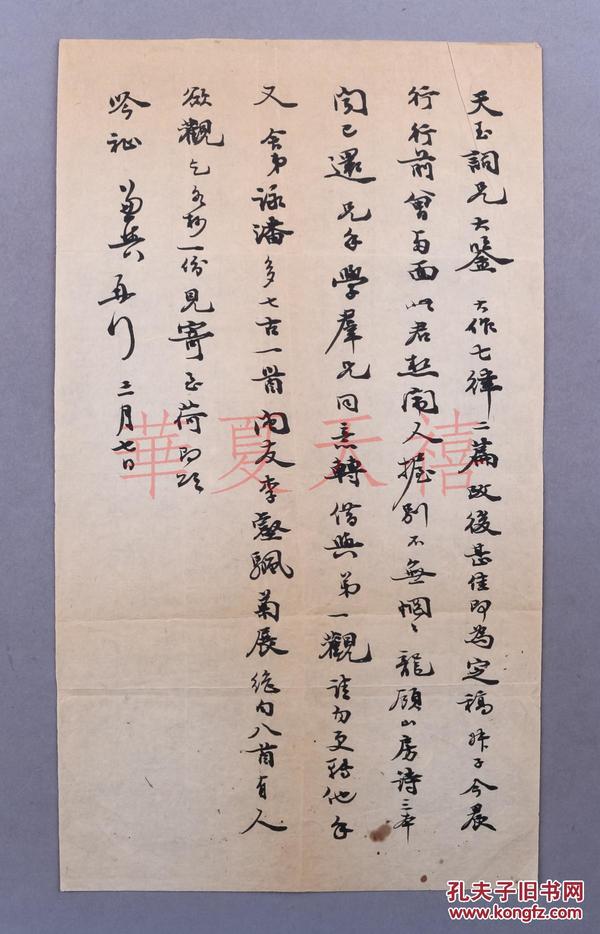 天玉詞兄大鑒 大作七律二篇改後甚佳即為定稿 今晨
行行前曾面此君熱鬧人握別不無惘〻龍顧山房詩三本
聞已還兄手學羣兄同意轉借與弟一觀請勿更轉他手
又 舍弟詠潘多七古一首閩友李 颿菊展絕句八首有人
欲觀乞各抄一份見寄至荷即頌
吟祉 弟與再行 二月七日
華夏天禧
孔夫子旧书网
www.kongfz.com